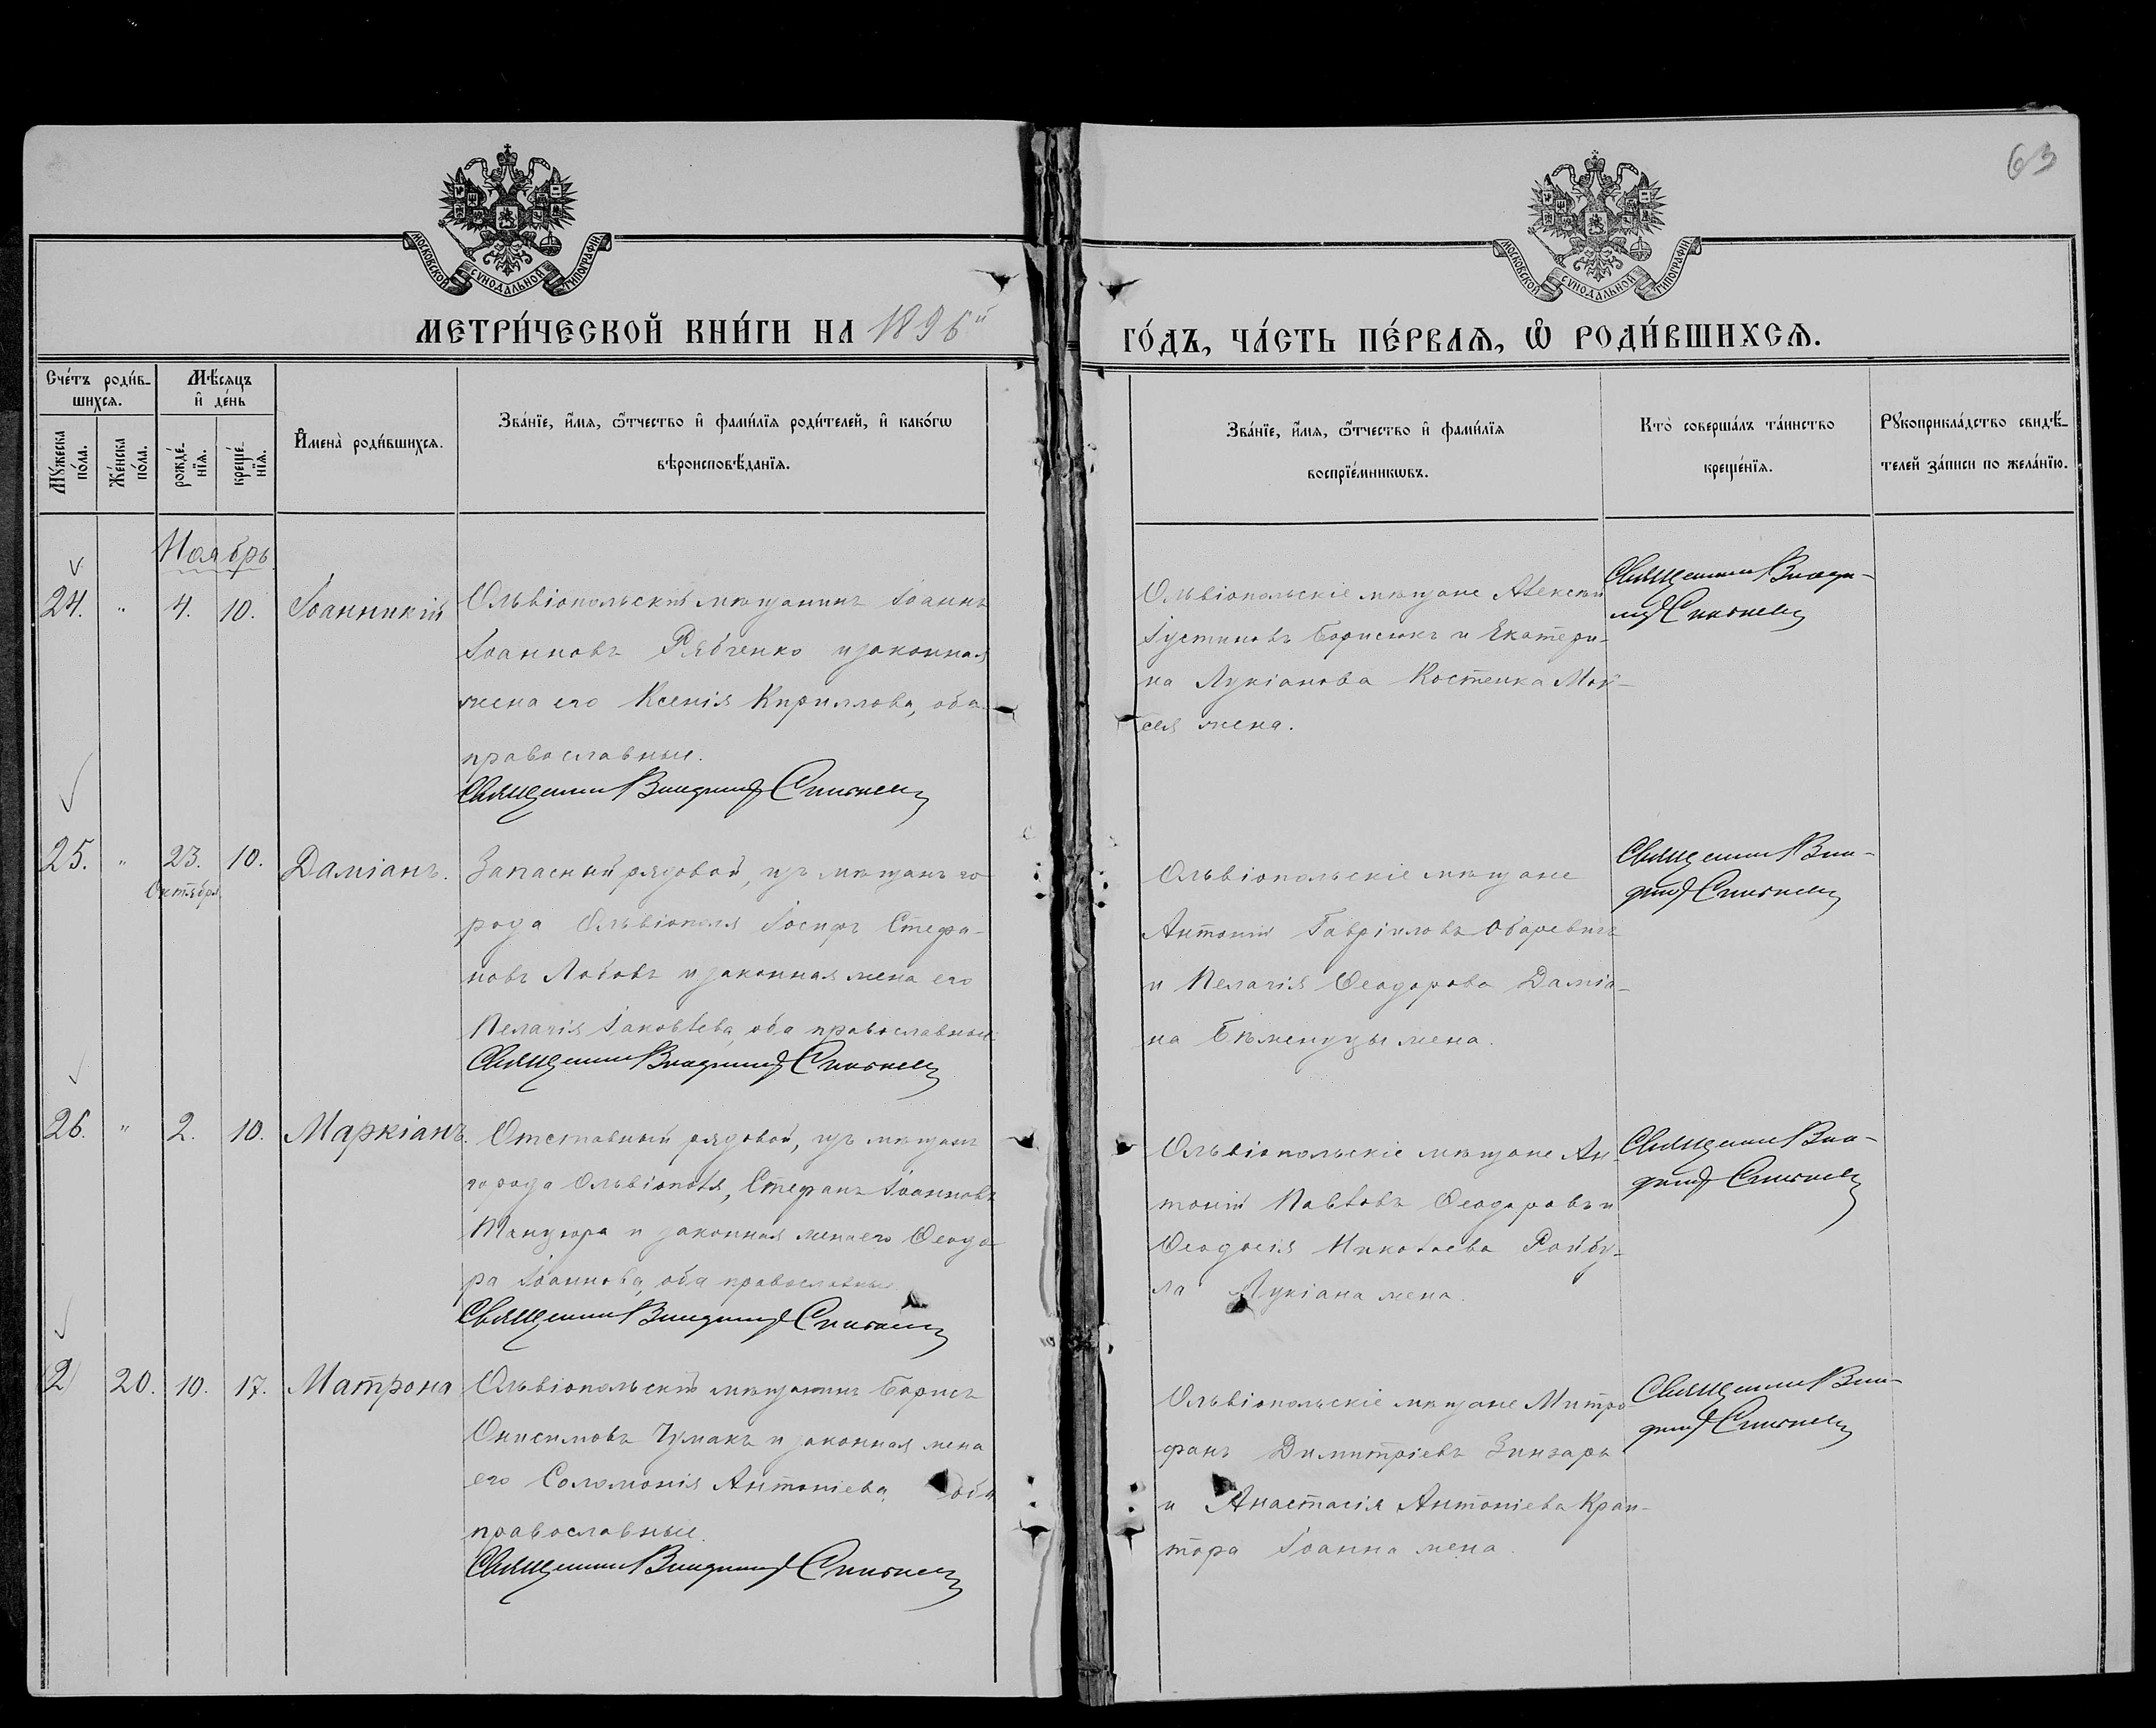 63
МОСКОВСКОЙ СѴНОДАЛЬНОЙ ТИПОГРАФІИ
МОСКОВСКОЙ СѴНОДАЛЬНОЙ ТИПОГРАФІИ
МЕТРИ́ЧЕСКОЙ КНИ́ГИ НА 1896й
ГО́ДЪ, ЧА́СТЬ ПЕ́РВАѦ, Ѡ҆ РОДИ́ВШИХСѦ.
Сче́тъ роди́в-
шихсѧ.
Мѹ́жеска
по́ла.
Же́нска
по́ла.
Мѣ́сѧцъ
и҆ де́нь
рожде́-
нїѧ.
креще́-
нїѧ.
И҆мена̀ роди́вшихсѧ.
Зва́нїе, и҆́мѧ, ѻ҆́тчество и҆ фами́лїѧ роди́телей, и҆ како́гѡ
вѣроисповѣ́данїѧ.
Зва́нїе, и҆́мѧ, ѻ҆́тчество и҆ фами́лїѧ
воспрїе́мникѡвъ.
Кто̀ соверша́лъ та́инство
креще́нїѧ.
Рѹкоприкла́дство свидѣ́-
телей за́писи по жела́нїю.
Ноябрь
24. " 4. 10. Іоанникій
Ольвіопольскій мѣщанинъ Іоаннъ
Іоанновъ Рябченко и законная
жена его Ксенія Кириллова, оба
православные.
Священникъ Владимиръ
Ольвіопольскіе мѣщане Алексѣй
Іустиновъ Борисюкъ и Екатери-
на Лукіанова Костенка Мои-
сея жена.
Священникъ Влади-
миръ
25. " 23. 10. Даміанъ.
Октября
Запасный рядовой, изъ мѣщанъ го-
рода Ольвіополя Іосифъ Стефа-
новъ Лобовъ и законная жена его
Пелагія Іаковлева, оба православные.
Священникъ Владимиръ
Ольвіопольскіе мѣщане
Антоній Гавріиловъ
и Пелагія Ѳеодорова Даміа-
на жена.
Священникъ Вла-
димиръ
26. " 2. 10. Маркіанъ.
Отставный рядовой, изъ мѣщанъ
города Ольвіополя, Стефанъ Іоанновъ
и законная жена его Ѳеодо-
ра Іоаннова, оба православные.
Священникъ Владимиръ
Ольвіопольскіе мѣщане Ан-
тоній Павловъ Ѳеодоровъ и
Ѳеодосія Николаева Райбу-
ла Лукіана жена.
Священникъ Вла-
димиръ
2 20. 10. 17. Матрона
Ольвіопольскій мѣщанинъ Борисъ
Онисимовъ Чумакъ и законная жена
его Соломонія Антоніева, оба
православные.
Священникъ Владимиръ
Ольвіопольскіе мѣщане Митро
фанъ Димитріевъ Зинзарь
и Анастасія Антоніева Кран-
тора Іоанна жена.
Священникъ Вла-
димиръ